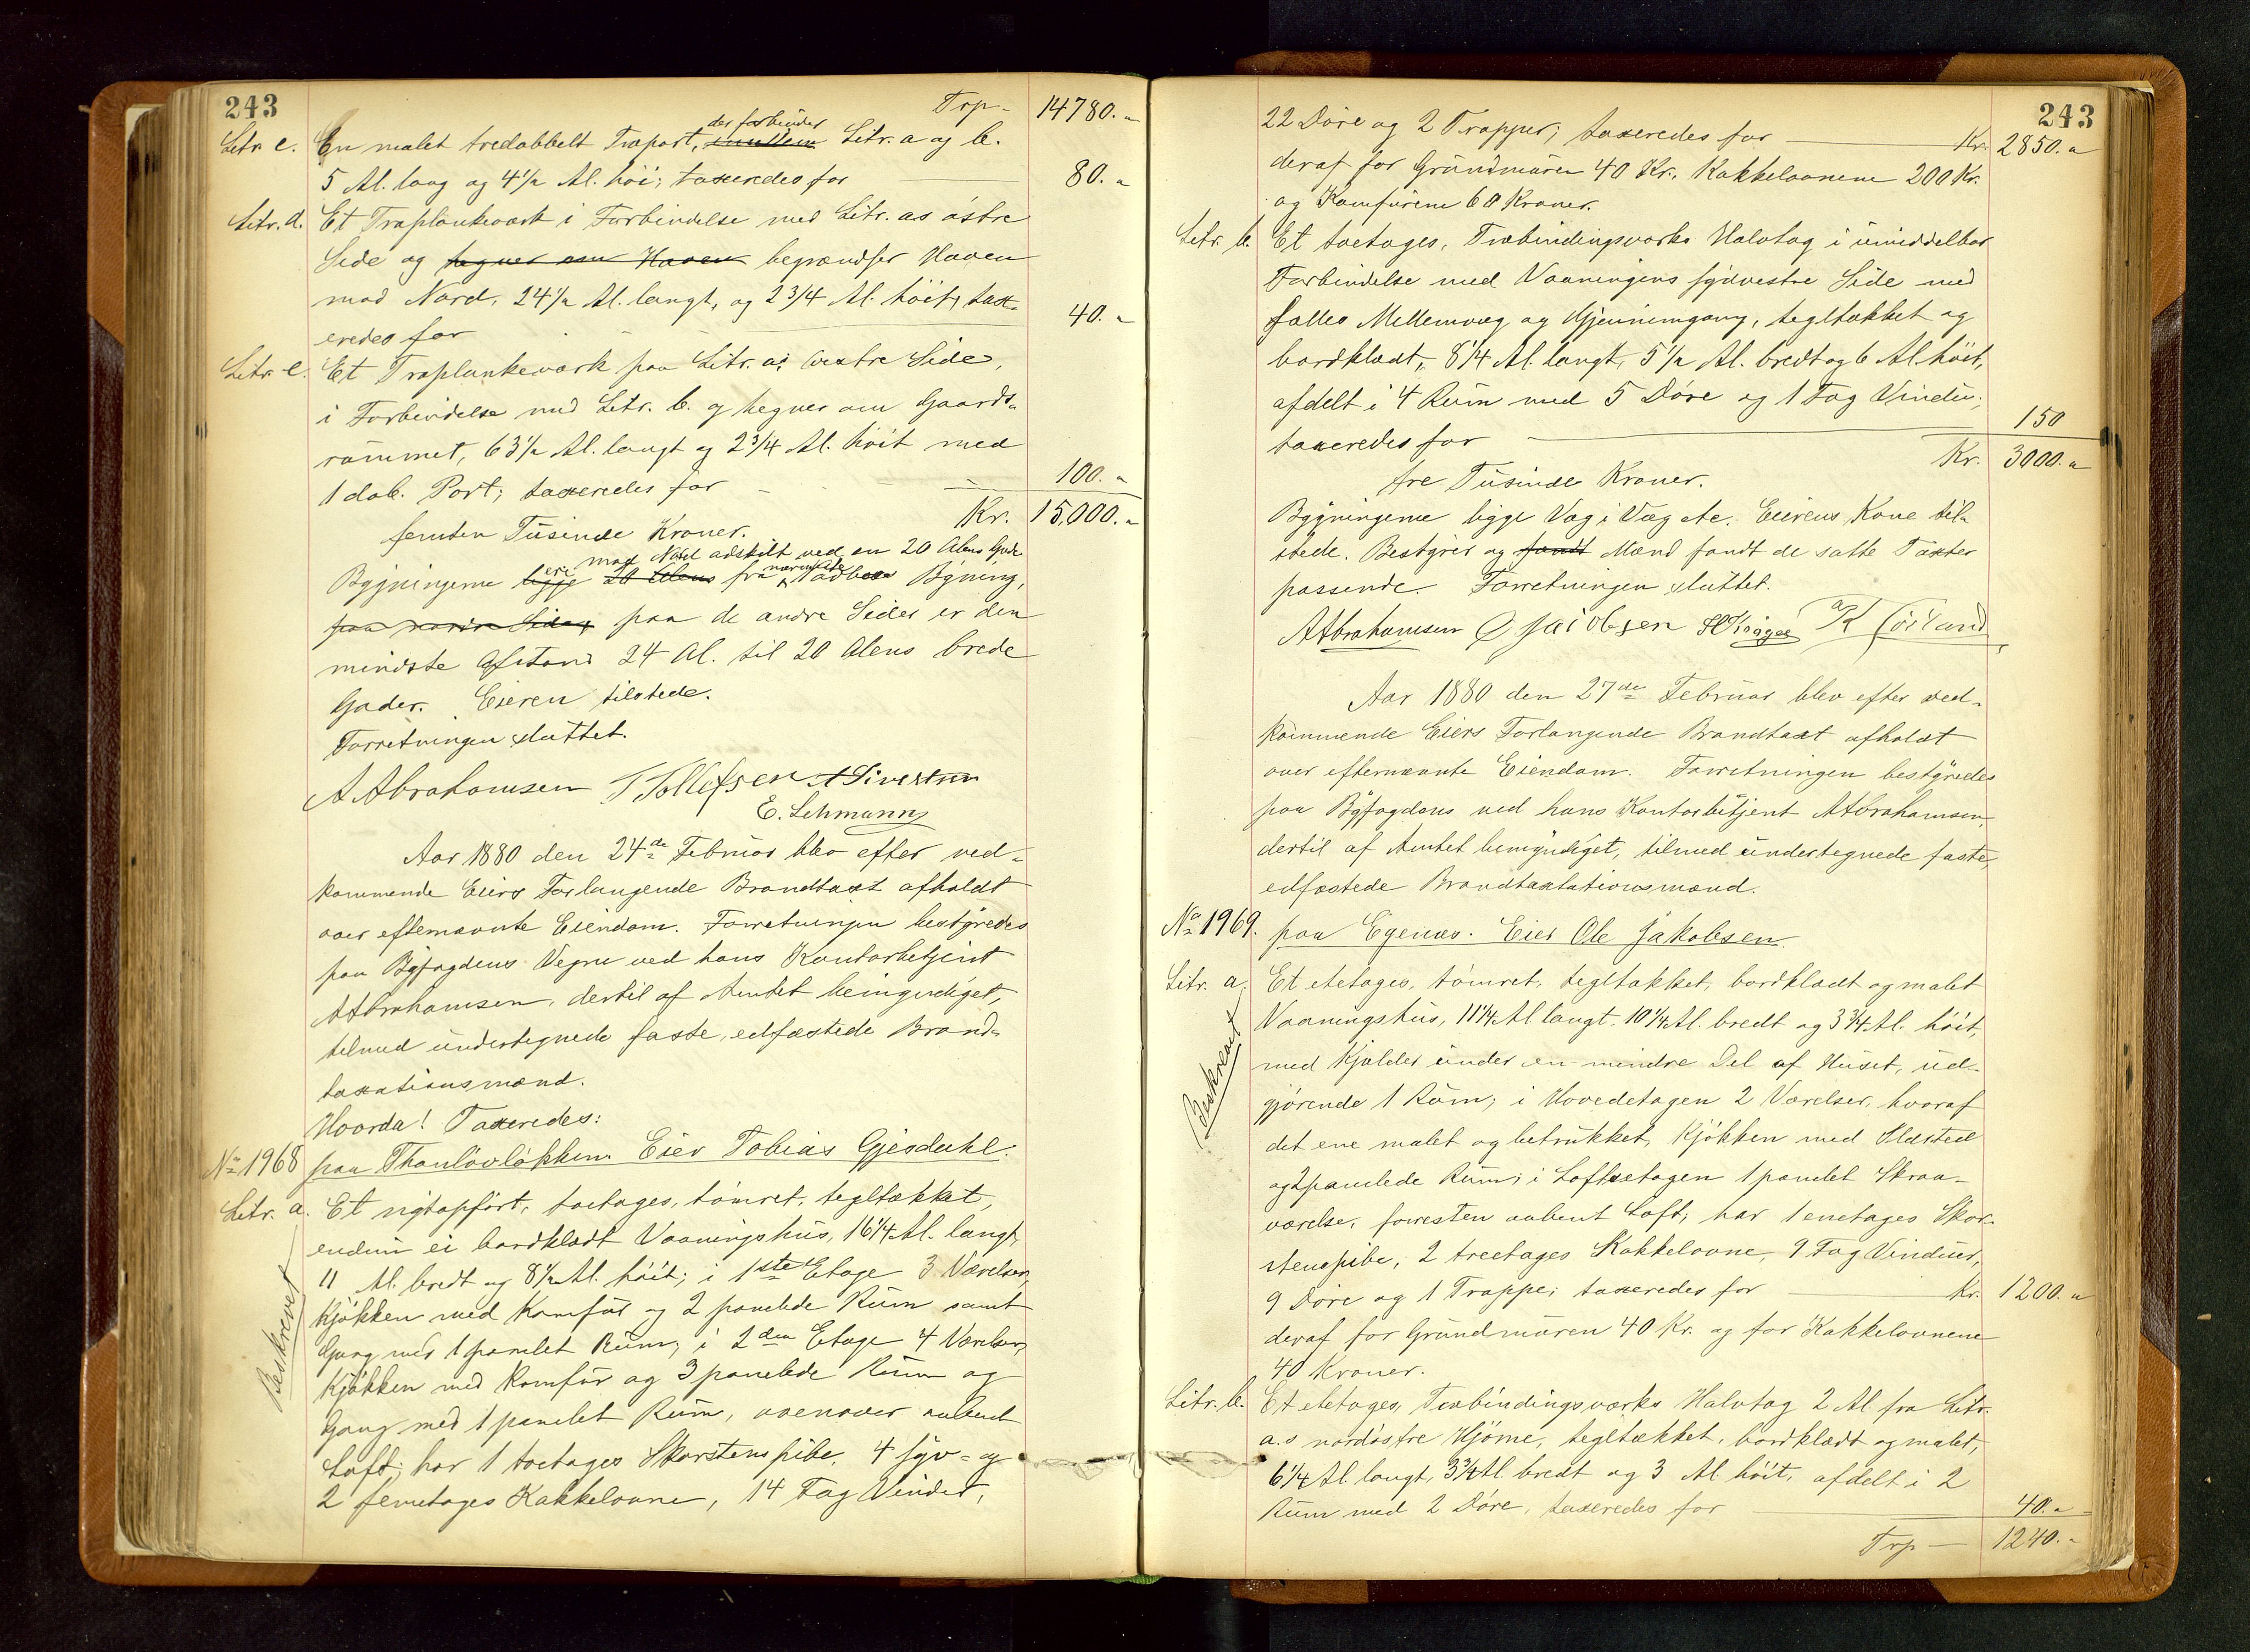 243
Trp - 14780.-
Litr. c. En malet tredobbelt Træport, der forbinder Litr. a og b.
5 Al. lang og 4½ Al. høi; taxeredes for 80.-
Litr. d. Et Træplankeværk i Forbindelse med Litr. a.s østre
Side og hegner om Haven begrændser Haven
mod Nord, 24½ Al. langt, og 2¾ Al. høit, tax-
eredes for 40.-
Litr. e. Et Træplankeværk paa Litr. a.s vestre Side,
i Forbindelse med Litr. b. og hegner om Gaards-
rummet, 63½ Al. langt og 2¾ Al. høit med
1 dob. Port; taxeredes for 100.-
Kr. 15,000.-
femten Tusinde Kroner.
mod Nord adskilt ved en 20 Alens Gade
Bygningerne ligge ere 20 Alens fra nærmeste Bygning,
paa nordre Side, paa de andre Sider er den
mindste Afstand 24 Al. til 20 Alens brede
Gader. Eieren tilstede.
Forretningen sluttet.
A Abrahamsen T Tollefsen A Sivertsen
E. Lehmann
Aar 1880 den 24de Februar blev efter ved-
kommende Eiers Forlangende Brandtaxt afholdt
over efternævnte Eiendom. Forretningen bestyredes
paa Byfogdens Vegne ved hans Kontorbetjent
A Abrahamsen, dertil af Amtet bemyndiget,
tilmed undertegnede faste, edfæstede Brand-
taxationsmænd.
Hvorda! Taxeredes:
No 1968 paa Thanløvløkken. Eier Tobias Gjesdahl.
Litr. a. Et nyt opført, toetages, tømret, tegltækket,
endnu ei bordklædt Vaaningshus, 16¼ Al. langt,
11 Al. bredt og 8½ Al. høit; i 1ste Etage 3 Værelser,
Kjøkken med Komfur og 2 panelede Rum samt
Gang med 1 panelet Rum; i 2den Etage 4 Værelser,
Kjøkken med Komfur og 3 panelede Rum og
Gang med 1 panelet Rum, ovenover aabent
Loft; har 1 toetages Skorstenspibe, 4 syv- og
2 femetages Kakkelovne, 14 Fag Vinduer,
Beskrevet
243
22 Døre og 2 Trapper; taxeredes for Kr. 2850.-
deraf for Grundmuren 40 Kr. Kakkelovnene 200 Kr.
og Komfurene 60 Kroner.
Litr. b. Et toetages, Træbindingsværks Halvtag i umiddelbar
Forbindelse med Vaaningens sydvestre Side med
fælles Mellemvæg og Gjennemgang, tegltækket og
bordklædt, 8¼ Al. langt, 5½ Al. bredt og 6 Al. høit,
afdelt i 4 Rum med 5 Døre og 1 Fag Vindu;
taxeredes for 150
Kr. 3000.-
tre Tusinde Kroner.
Bygningerne ligge Væg i Væg etc. Eierens Kone til-
stede. Bestyrer og fandt Mænd fandt de satte Taxter
passende. Forretningen sluttet.
A Abrahamsen O Jacobsen
Aar 1880 den 27de Februar blev efter ved-
kommende Eiers Forlangende Brandtaxt afholdt
over efternævnte Eiendom. Forretningen bestyredes
paa Byfogdens ved hans Kontorbetjent A Abrahamsen,
dertil af Amtet bemyndiget, tilmed undertegnede faste,
edfæstede Brandtaxtationsmænd.
No 1969. paa Egenæs. Eier Ole Jakobsen.
Litr. a. Et etetages, tømret, tegltækket, bordklædt og malet
Vaaningshus, 11¼ Al langt, 10¼ Al. bredt og 3¾ Al. høit,
med Kjælder under en mindre Del af Huset, ud-
gjørende 1 Rum; i Hovedetagen 2 Værelser, hvoraf
det ene malet og betrukket, Kjøkken med Ildsted
og 2 panelede Rum; i Loftsetagen 1 panelet Skraa-
værelse, forresten aabent Loft; har 1 enetages Skor-
stenspibe, 2 treetages Kakkelovne, 9 Fag Vinduer,
9 Døre og 1 Trappe; taxeredes for Kr. 1200.-
deraf for Grundmuren 40 Kr. og for Kakkelovnene
40 Kroner.
Litr. b. Et etetages, Træbindingsværks Halvtag 2 Al fra Litr.
a.s nordøstre Hjørne, tegltækket, bordklædt og malet,
6¼ Al langt, 3¾ Al. bredt og 3 Al høit, afdelt i 2
Rum med 2 Døre, taxeredes for 40.-
Trp - 1240.-
Beskrevet